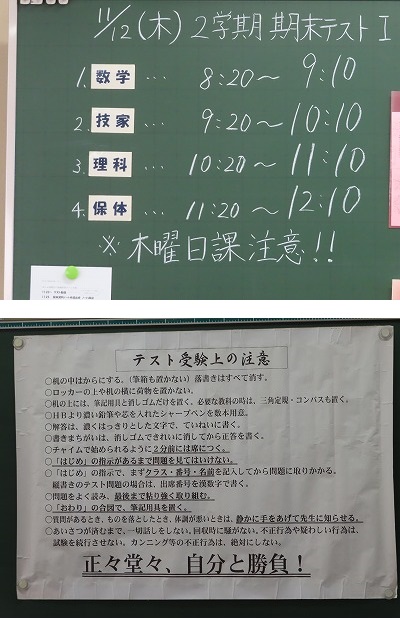 11/12(木) 2学期 期末テスト I
1. 数学 … 8:20～9:10
2. 技家 … 9:20～10:10
3. 理科 … 10:20～11:10
4. 保体 … 11:20～12:10
※木曜日課注意!!
テスト受験上の注意
○机の中はからにする。(筆箱も置かない)落書きはすべて消す。
○ロッカーの上や机の横に荷物を置かない。
○机の上には、筆記用具と消しゴムだけを置く。必要な教科の時は、三角定規・コンパスも置く。
○HBより濃い鉛筆や芯を入れたシャープペンを数本用意。
○解答は、濃くはっきりとした文字で、ていねいに書く。
○書きまちがいは、消しゴムできれいに消してから正答を書く。
○チャイムで始められるように2分前には席につく。
○「はじめ」の指示があるまで問題を見てはいけない。
○「はじめ」の指示で、まずクラス・番号・名前を記入してから問題に取りかかる。
縦書きのテスト問題の場合は、出席番号を漢数字で書く。
○問題をよく読み、最後まで粘り強く取り組む。
○「おわり」の合図で、筆記用具を置く。
○質問があるとき、ものを落としたとき、体調が悪いときは、静かに手をあげて先生に知らせる。
○あいさつが済むまで、一切話しをしない。回収時に騒がない。不正行為や疑わしい行為は、
試験を続行させない。カンニング等の不正行為は、絶対にしない。
正々堂々、自分と勝負！